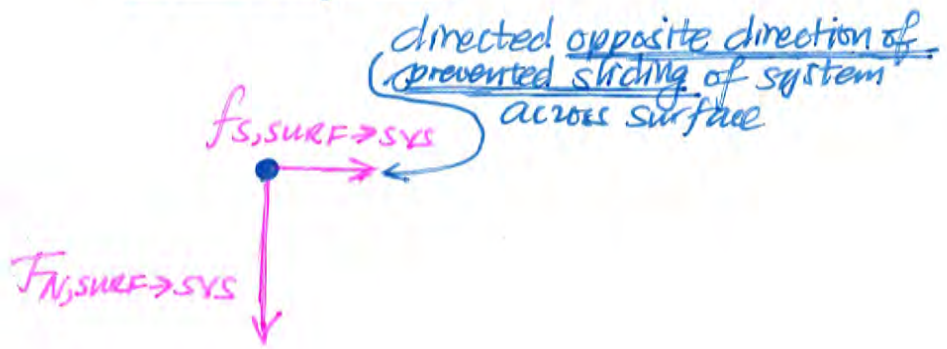 directed opposite direction of
prevented sliding of system
across surface
fs,SURF→SYS
FN,SURF→SYS